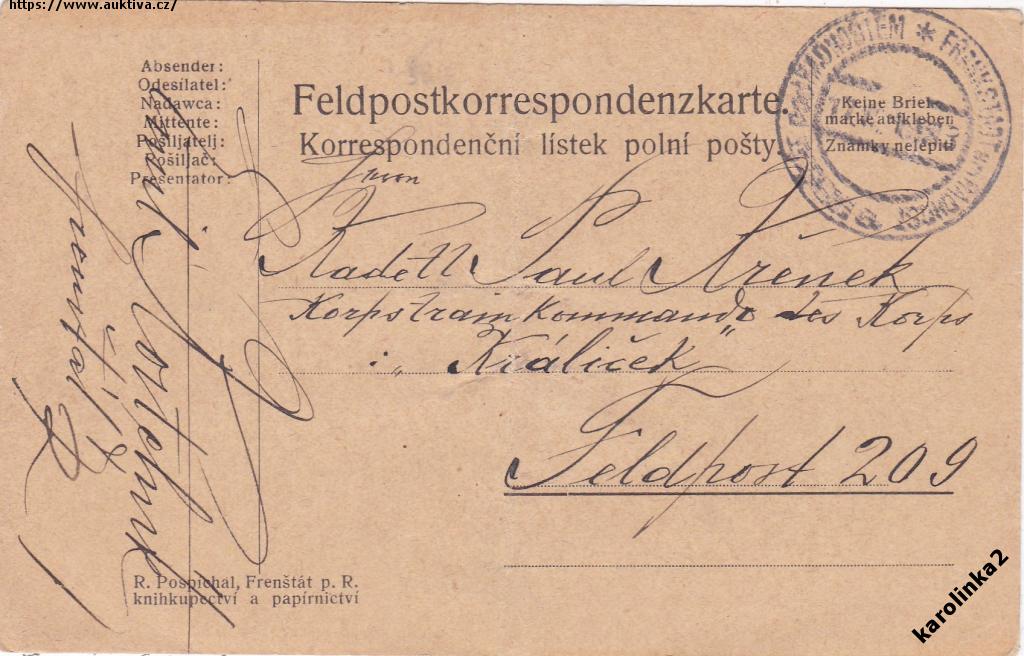 https://www.auktiva.cz/
Absender:
Odesílatel:
Nadawca:
Mittente:
Pošiljatelj:
Pošiljač:
Presentator:
Feldpostkorrespondenzkarte.
Korrespondenční lístek polní pošty.
Keine Brief-
marke aufkleben
Známky nelepit!
Herrn
Kadett Paul Křenek
Korpstrainkommando des Korps
"Králiček"
Feldpost 209
R. Pospíchal, Frenštát p. R.
knihkupectví a papírnictví
karolinka2